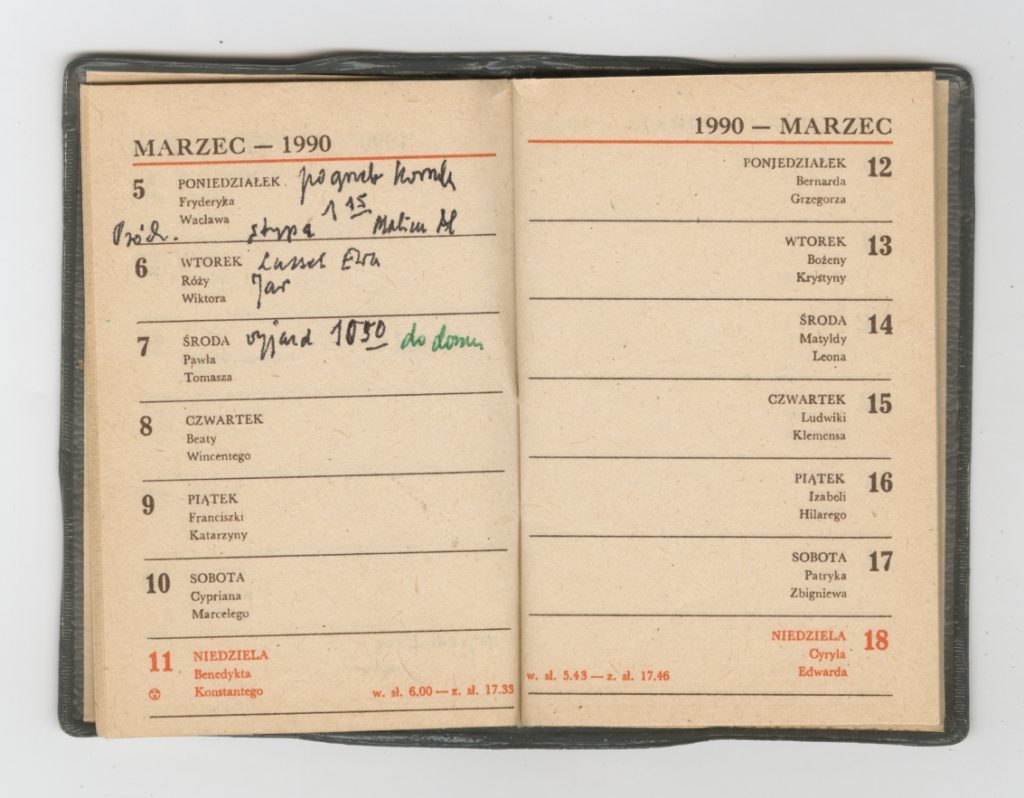 MARZEC — 1990
5 PONIEDZIAŁEK pogrzeb
Fryderyka
Wacława
stypa 1 15
6 WTOREK Ewa
Róży
Wiktora Jar
7 ŚRODA wyjazd 10 50 do domu
Pawła
Tomasza
8 CZWARTEK
Beaty
Wincentego
9 PIĄTEK
Franciszki
Katarzyny
10 SOBOTA
Cypriana
Marcelego
11 NIEDZIELA
Benedykta
Konstantego w. sł. 6.00 — z. sł. 17.33
1990 — MARZEC
PONJEDZIAŁEK 12
Bernarda
Grzegorza
WTOREK 13
Bożeny
Krystyny
ŚRODA 14
Matyldy
Leona
CZWARTEK 15
Ludwiki
Klemensa
PIĄTEK 16
Izabeli
Hilarego
SOBOTA 17
Patryka
Zbigniewa
NIEDZIELA 18
Cyryla
w. sł. 5.43 — z. sł. 17.46 Edwarda